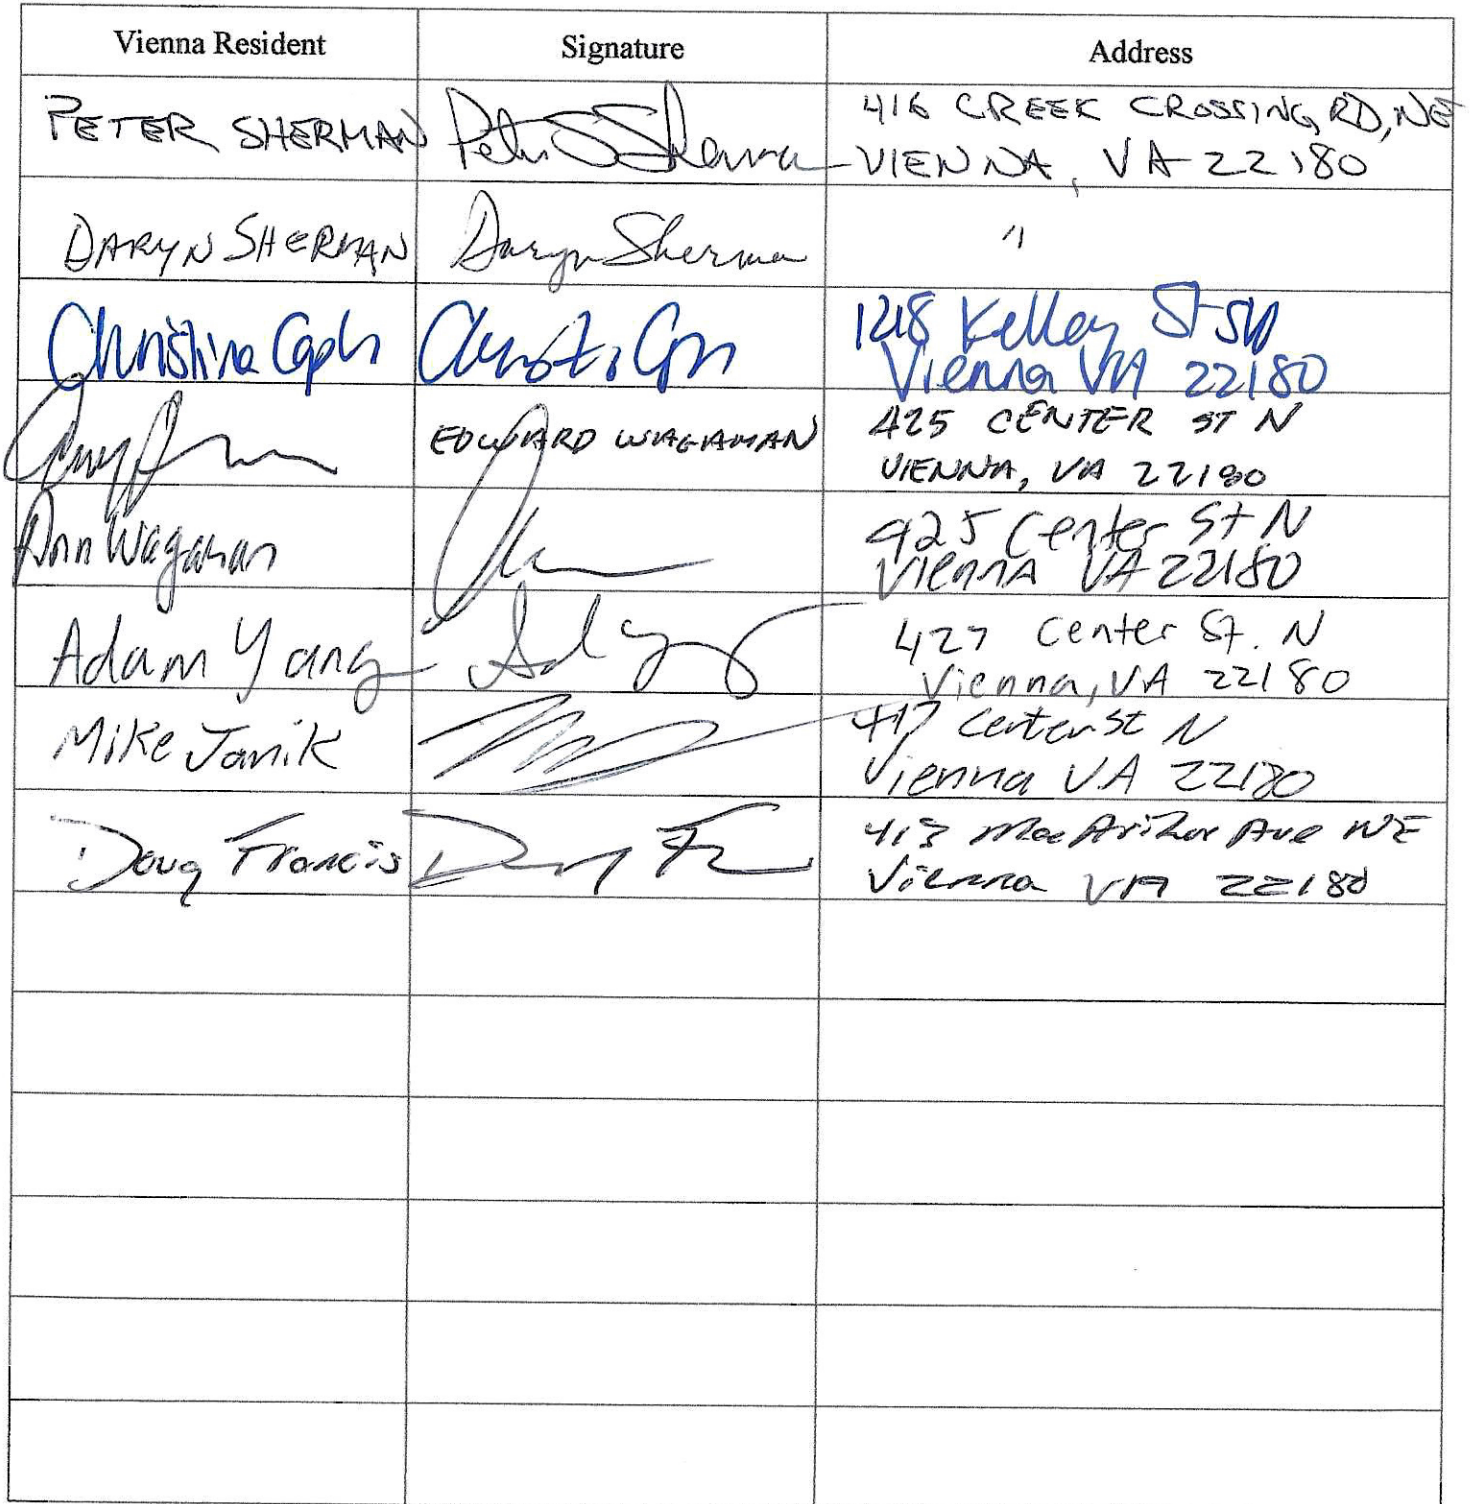 Vienna Resident Signature Address
PETER SHERMAN Peter S Sherman 416 CREEK CROSSING RD, NE
VIENNA, VA 22180
DARYN SHERMAN Daryn Sherman "
Christina 1218 Kelley St SW
Vienna VA 22180
EDWARD WAGAMAN 425 CENTER ST N
VIENNA, VA 22180
Ann Wagaman 425 Center St N
Vienna VA 22180
Adam Yang 427 Center St. N
Vienna, VA 22180
Mike Janik 417 Center St N
Vienna VA 22180
Doug Francis 413 MacArthur Ave NE
Vienna VA 22180